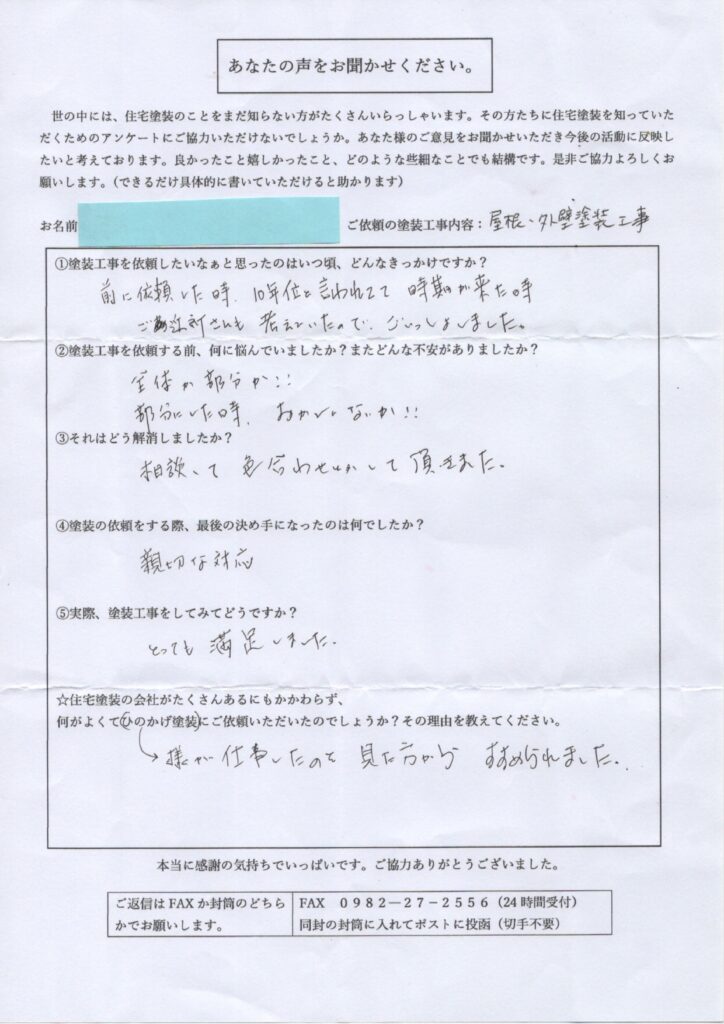 あなたの声をお聞かせください。
世の中には、住宅塗装のことをまだ知らない方がたくさんいらっしゃいます。その方たちに住宅塗装を知っていた
だくためのアンケートにご協力いただけないでしょうか。あなた様のご意見をお聞かせいただき今後の活動に反映し
たいと考えております。良かったこと嬉しかったこと、どのような些細なことでも結構です。是非ご協力よろしくお
願いします。(できるだけ具体的に書いていただけると助かります)
お名前 ご依頼の塗装工事内容：屋根、外壁塗装工事
①塗装工事を依頼したいなぁと思ったのはいつ頃、どんなきっかけですか？
前に依頼した時、10年位と言われてて 時期が来た時
ご近所さんも 考えていたので、ごいっしょしました。
②塗装工事を依頼する前、何に悩んでいましたか？またどんな不安がありましたか？
全体か 部分か!!
部分にした時、おかしくないか!!
③それはどう解消しましたか？
相談して 色合わせ して 頂きました。
④塗装の依頼をする際、最後の決め手になったのは何でしたか？
親切な対応
⑤実際、塗装工事をしてみてどうですか？
とっても 満足しました。
☆住宅塗装の会社がたくさんあるにもかかわらず、
何がよくてひのかげ塗装にご依頼いただいたのでしょうか？その理由を教えてください。
様が 仕事したのを 見た方から すすめられました。
本当に感謝の気持ちでいっぱいです。ご協力ありがとうございました。
ご返信は FAX か封筒のどちら
かでお願いします。
FAX 0982―27-2556（24時間受付）
同封の封筒に入れてポストに投函（切手不要）